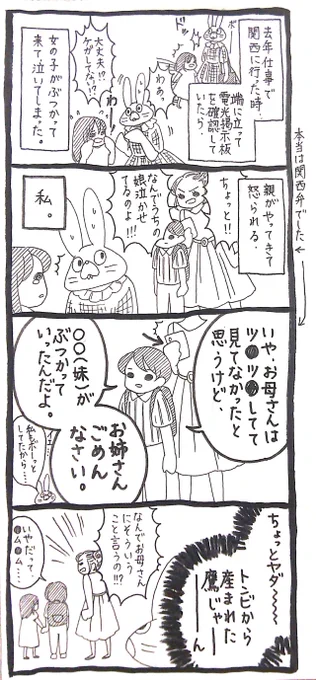 去年仕事で
関西に行った時…
ボー
端に立って
電光掲示板
を確認して
いたら、
わあっ
わっ
大丈夫!?
ケガしてない!?
女の子がぶつかって
来て泣いてしまった。
本当は関西弁でした
親がやってきて
怒られる。
ちょっと!!
なんでうちの
娘泣かせ
てるのよ!!!
私。
いや、お母さんは
ツ●ツ●してて
見てなかったと
思うけど、
○○(妹)が
ぶつかって
いったんだよ。
お姉さん
ごめん
なさい。
イ…
私もボーっと
してたから…
ちょっとヤダ〜〜〜
トンビから
産まれた
鷹じゃーーん
なんでお母さん
にそういう
こと言うの!!!?
いやだって
●ム●ム…